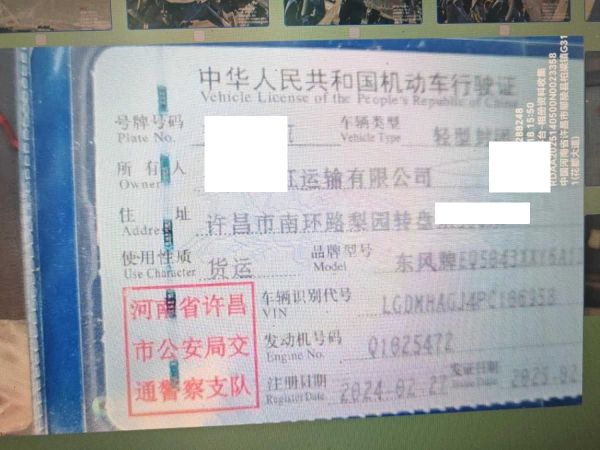 中华人民共和国机动车行驶证
Vehicle License of the People's Republic of China
号牌号码
Plate No.
车辆类型
Vehicle Type
轻型封闭
所有人
Owner
江运输有限公司
住址
Address
许昌市南环路梨园转盘
使用性质
Use Character
货运
品牌型号
Model
东风牌
河南省许昌
市公安局交
通警察支队
车辆识别代号
VIN
发动机号码
Engine No.
Q1025472
注册日期
Register Date
2024-02-27
发证日期
Issue Date
15:50
中国河南省许昌市鄢陵县柏梁镇G31
1(花都大道)